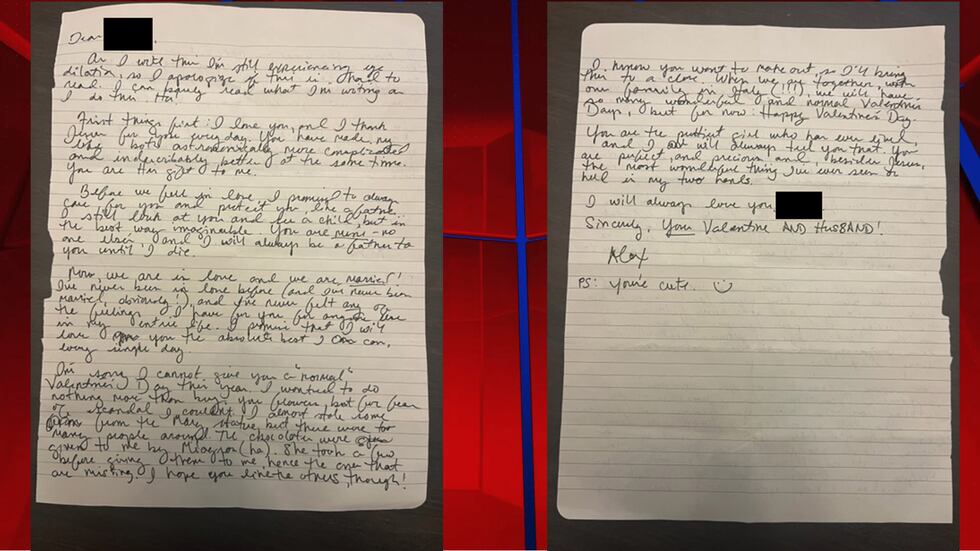 Dear
As I write this I'm still experiencing eye
dilation, so I apologize if this is hard to
read. I can barely read what I'm writing as
I do this. Ha!
First things first: I love you, and I thank
Jesus for you every day. You have made my
life both astronomically more complicated
and indescribably better at the same time.
You are His gift to me.
Before we fell in love I promised to always
care for you and protect you like a father.
I still look at you and see a child, but in
the best way imaginable. You are mine - no
one else's, and I will always be a father to
you until I die.
Now we are in love and we are married!
I've never been in love before (and I've never been
married, obviously!), and I've never felt any of
the feelings I have for you for anyone else
in my entire life. I promise that I will
love you the absolute best I can,
every single day.
I'm sorry I cannot give you a "normal"
Valentine's Day this year. I wanted to do
nothing more than buy you flowers, but for fear
of scandal I couldn't. I almost stole some
from the Mary statue, but there were too
many people around. The chocolates were
given to me by (ha). She took a few
before giving them to me, hence the ones that
are missing. I hope you like the others, though!
I know you want to make out, so I'll bring
this to a close. When we are together, with
our family in Italy (!!!), we will have
so many wonderful and normal Valentine's
Days, but for now: Happy Valentine's Day.
You are the prettiest girl who has ever lived
and I will always tell you that. You
are perfect, and precious, and, besides Jesus,
the most wonderful thing I've ever seen or
held in my two hands.
I will always love you
Sincerely, Your Valentine AND HUSBAND!
Alex
PS: You're cute. :)